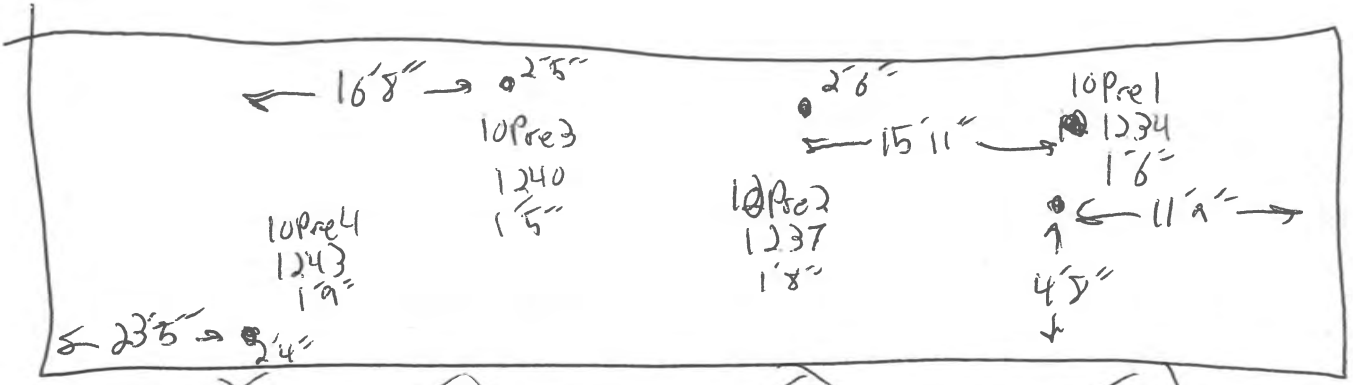 16'8" 2'5"
10Pre3
1240
1'5"
2'6"
15'11"
10Pre1
1234
1'6"
11'9"
4'8"
10Pre2
1237
1'8"
10Pre4
1243
1'9"
23'5" 2'4"